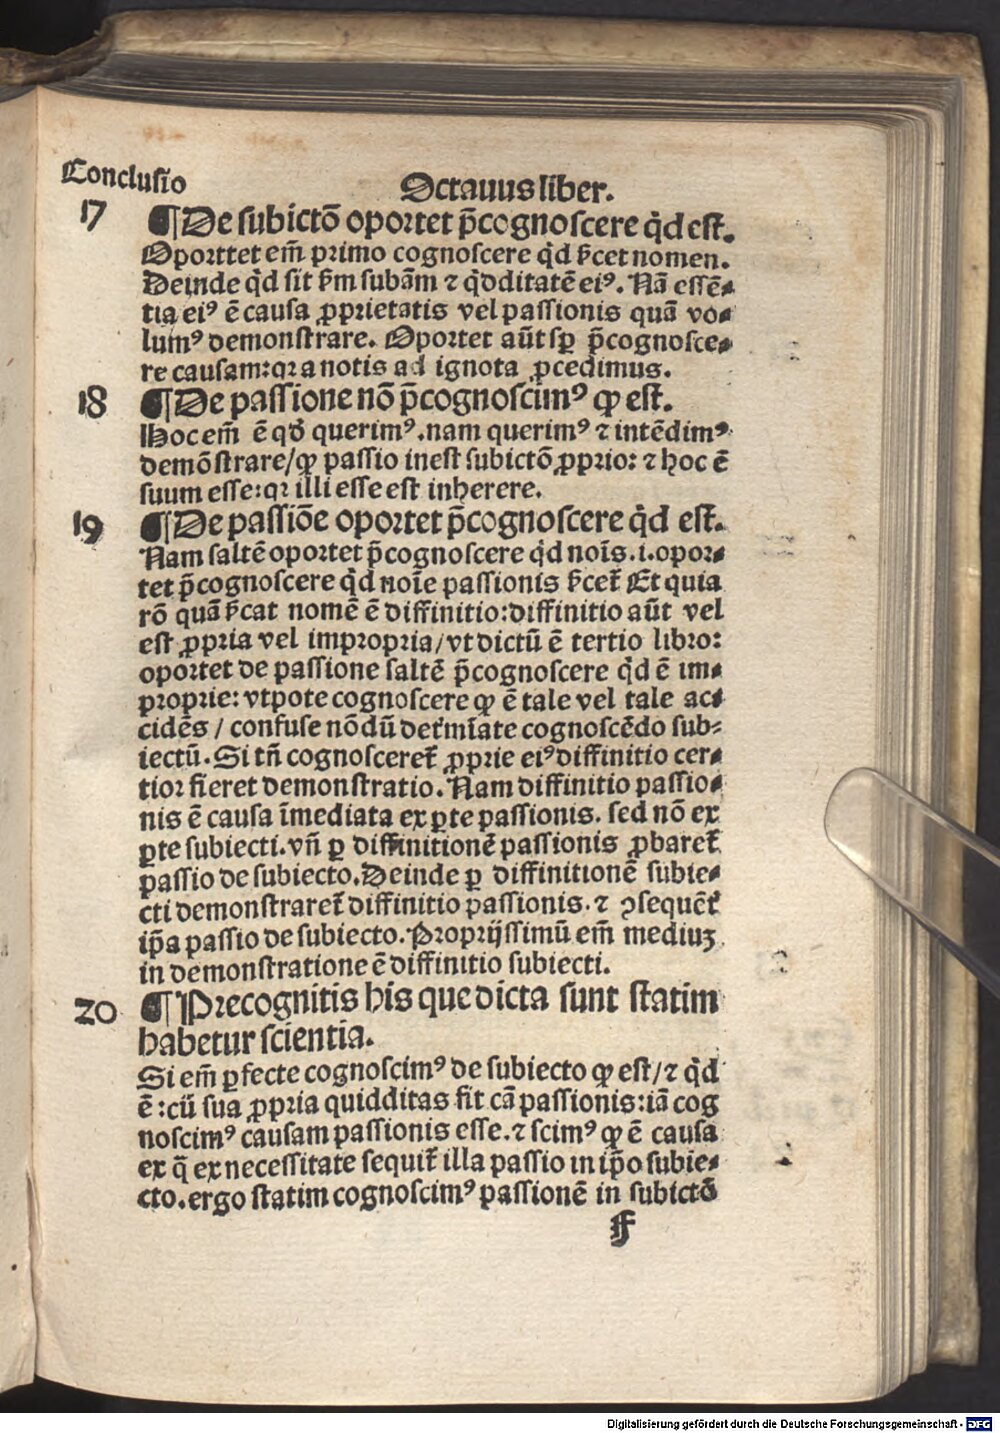 Conclusio
Octauus liber.
17 ¶De subictō oportet p̄cognoscere qͥd est.
Oporttet em̄ primo cognoscere qͥd sͥcet nomen.
Deinde qͥd sit sm̄ subam̄ ⁊ qͥdditatē eiꝰ. Nā essē-
tia eiꝰ ē causa ꝓprietatis vel passionis quā vo-
lumꝰ demonstrare. Oportet aūt sꝑ p̄cognosce-
re causam:qꝛ a notis ad ignota ꝓcedimus.
18 ¶De passione nō p̄cognoscimꝰ ꝙ est.
Hoc em̄ ē qd̓ querimꝰ. nam querimꝰ ⁊ intēdimꝰ
demōstrare/ꝙ passio inest subictō ꝓprio: ⁊ hoc ē
suum esse:qꝛ illi esse est inherere.
19 ¶De passiōe oportet p̄cognoscere qͥd est.
Nam saltē oportet p̄cognoscere qͥd noīs.i.opor-
tet p̄cognoscere qͥd noīe passionis sͥcet᷑ Et quia
rō quā sͥcat nomē ē diffinitio:diffinitio aūt vel
est ꝓpria vel impropria/vt dictū ē tertio libro:
oportet de passione saltē p̄cognoscere qͥd ē im-
proprie: vtpote cognoscere ꝙ ē tale vel tale ac-
cidēs / confuse nōdū det᷑mīate cognoscēdo sub-
iectū. Si tn̄ cognosceret᷑ ꝓprie eiꝰ diffinitio cer-
tior fieret demonstratio. Nam diffinitio passio-
nis ē causa īmediata ex ꝑte passionis. sed nō ex
ꝑte subiecti.vn̄ ꝑ diffinitionē passionis ꝓbaret᷑
passio de subiecto. Deinde ꝑ diffinitionē subie-
cti demonstraret᷑ diffinitio passionis. ⁊ ꝯsequēt᷑
ip̄a passio de subiecto. Proprijssimū em̄ mediuꝫ
in demonstratione ē diffinitio subiecti.
20 ¶Precognitis his que dicta sunt statim
habetur scientia.
Si em̄ ꝑfecte cognoscimꝰ de subiecto ꝙ est/⁊ qͥd
ē :cū sua ꝓpria quidditas sit cā passionis:iā cog
noscimꝰ causam passionis esse. ⁊ scimꝰ ꝙ ē causa
ex q̄ ex necessitate sequit᷑ illa passio in ip̄o subie-
cto.ergo statim cognoscimꝰ passionē in subictō
f
Digitalisierung gefördert durch die Deutsche Forschungsgemeinschaft - DFG